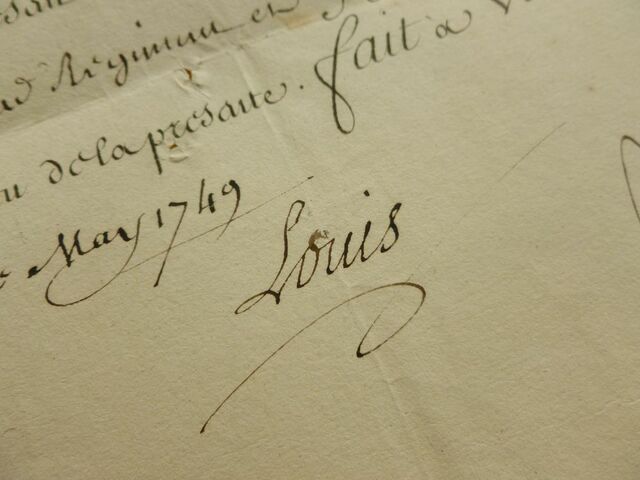 Régiment et
de la presante. fait à
May 1749
Louis